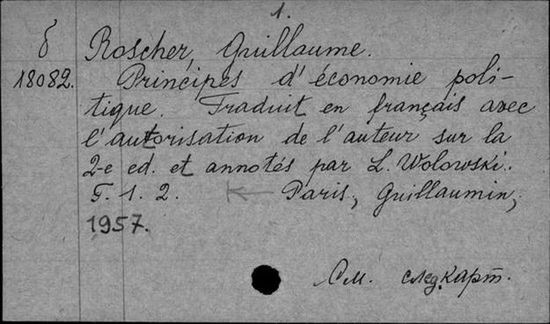 1.
б Roscher, Guillaume.
18082. Principes d'économie poli-
tique. Traduit en français avec
l'autorisation de l'auteur sur la
2-e ed. et annotés par L. Wolowski.
T. 1. 2. ← Paris, Guillaumin,
1957.
См. след. карт.